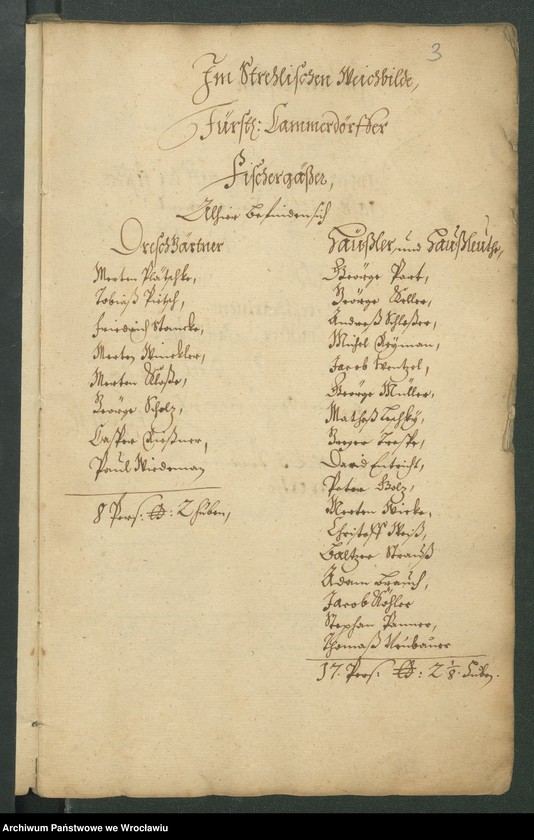 3
Im Strehlischen Weichbilde,
Fürstl: Cammerdörffer
Fischergäßer,
Alhier befinden sich
Dreschgärtner
Merten Platschke,
Tobiaß Pütsch,
Friedrich Stancke,
Merten Winckler,
Merten Kloße,
George Scholz,
Casper Gießner,
Paul Wiedeman
8 Pers: : 2 Huben,
Häußler, und Haußleuthe,
George Part,
George Keller,
Andreß Schloßer,
Michel Heÿman,
Jacob Wentzel,
George Müller,
Matheß Lachkÿ,
Trespe,
David Entricht,
Peter Golz,
Merten Wircke,
Christoff Weiß,
Baltzer Strauß
Adam Brauch,
Jacob Köhler
Stephan Panner,
Thomaß Neubauer
17. Pers: : 2 1/8. Huben.
Archiwum Państwowe we Wrocławiu